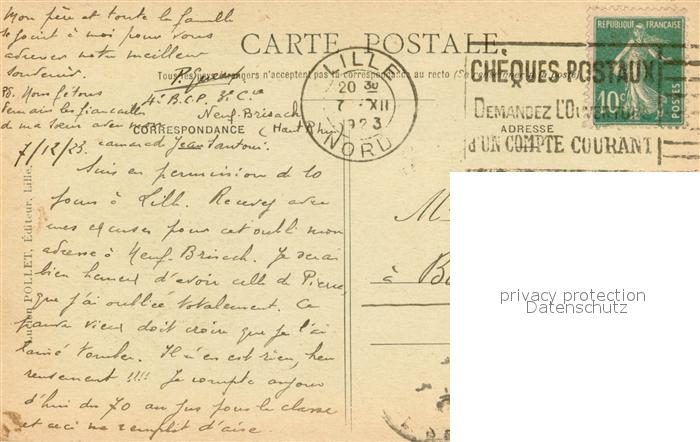 Mon père et toute la famille
se joint à moi pour vous
adresser notre meilleur
souvenir.
PS. Nous fêtons
demain les fiançailles
de ma sœur avec mon
camarade Jean
CARTE POSTALE
Tous les pays étrangers n'acceptent pas la correspondance au recto (Se
4e B.C.P. 3e Cie
Neuf-Brisach
(Haut Rhin)
CORRESPONDANCE
ADRESSE
LILLE
20 30
7 -XII
1923
NORD
CHÈQUES POSTAUX
DEMANDEZ L'OUVERTURE
d'UN COMPTE COURANT
REPUBLIQUE FRANÇAISE
10c
POSTES
7/12/23.
Suis en permission de 10
jours à Lille. Recevez avec
mes excuses pour cet oubli mon
adresse à Neuf-Brisach. Je serai
bien heureux d'avoir celle de Pierre,
que j'ai oubliée totalement. Ce
pauvre vieux doit croire que je l'ai
laissé tomber. Il n'en est rien, heu
reusement !!!! Je compte aujour
d'hui du 70 au jus pour la classe
et ceci me remplit d'aise.
POLLET, Éditeur, Lille
M
à B
privacy protection
Datenschutz